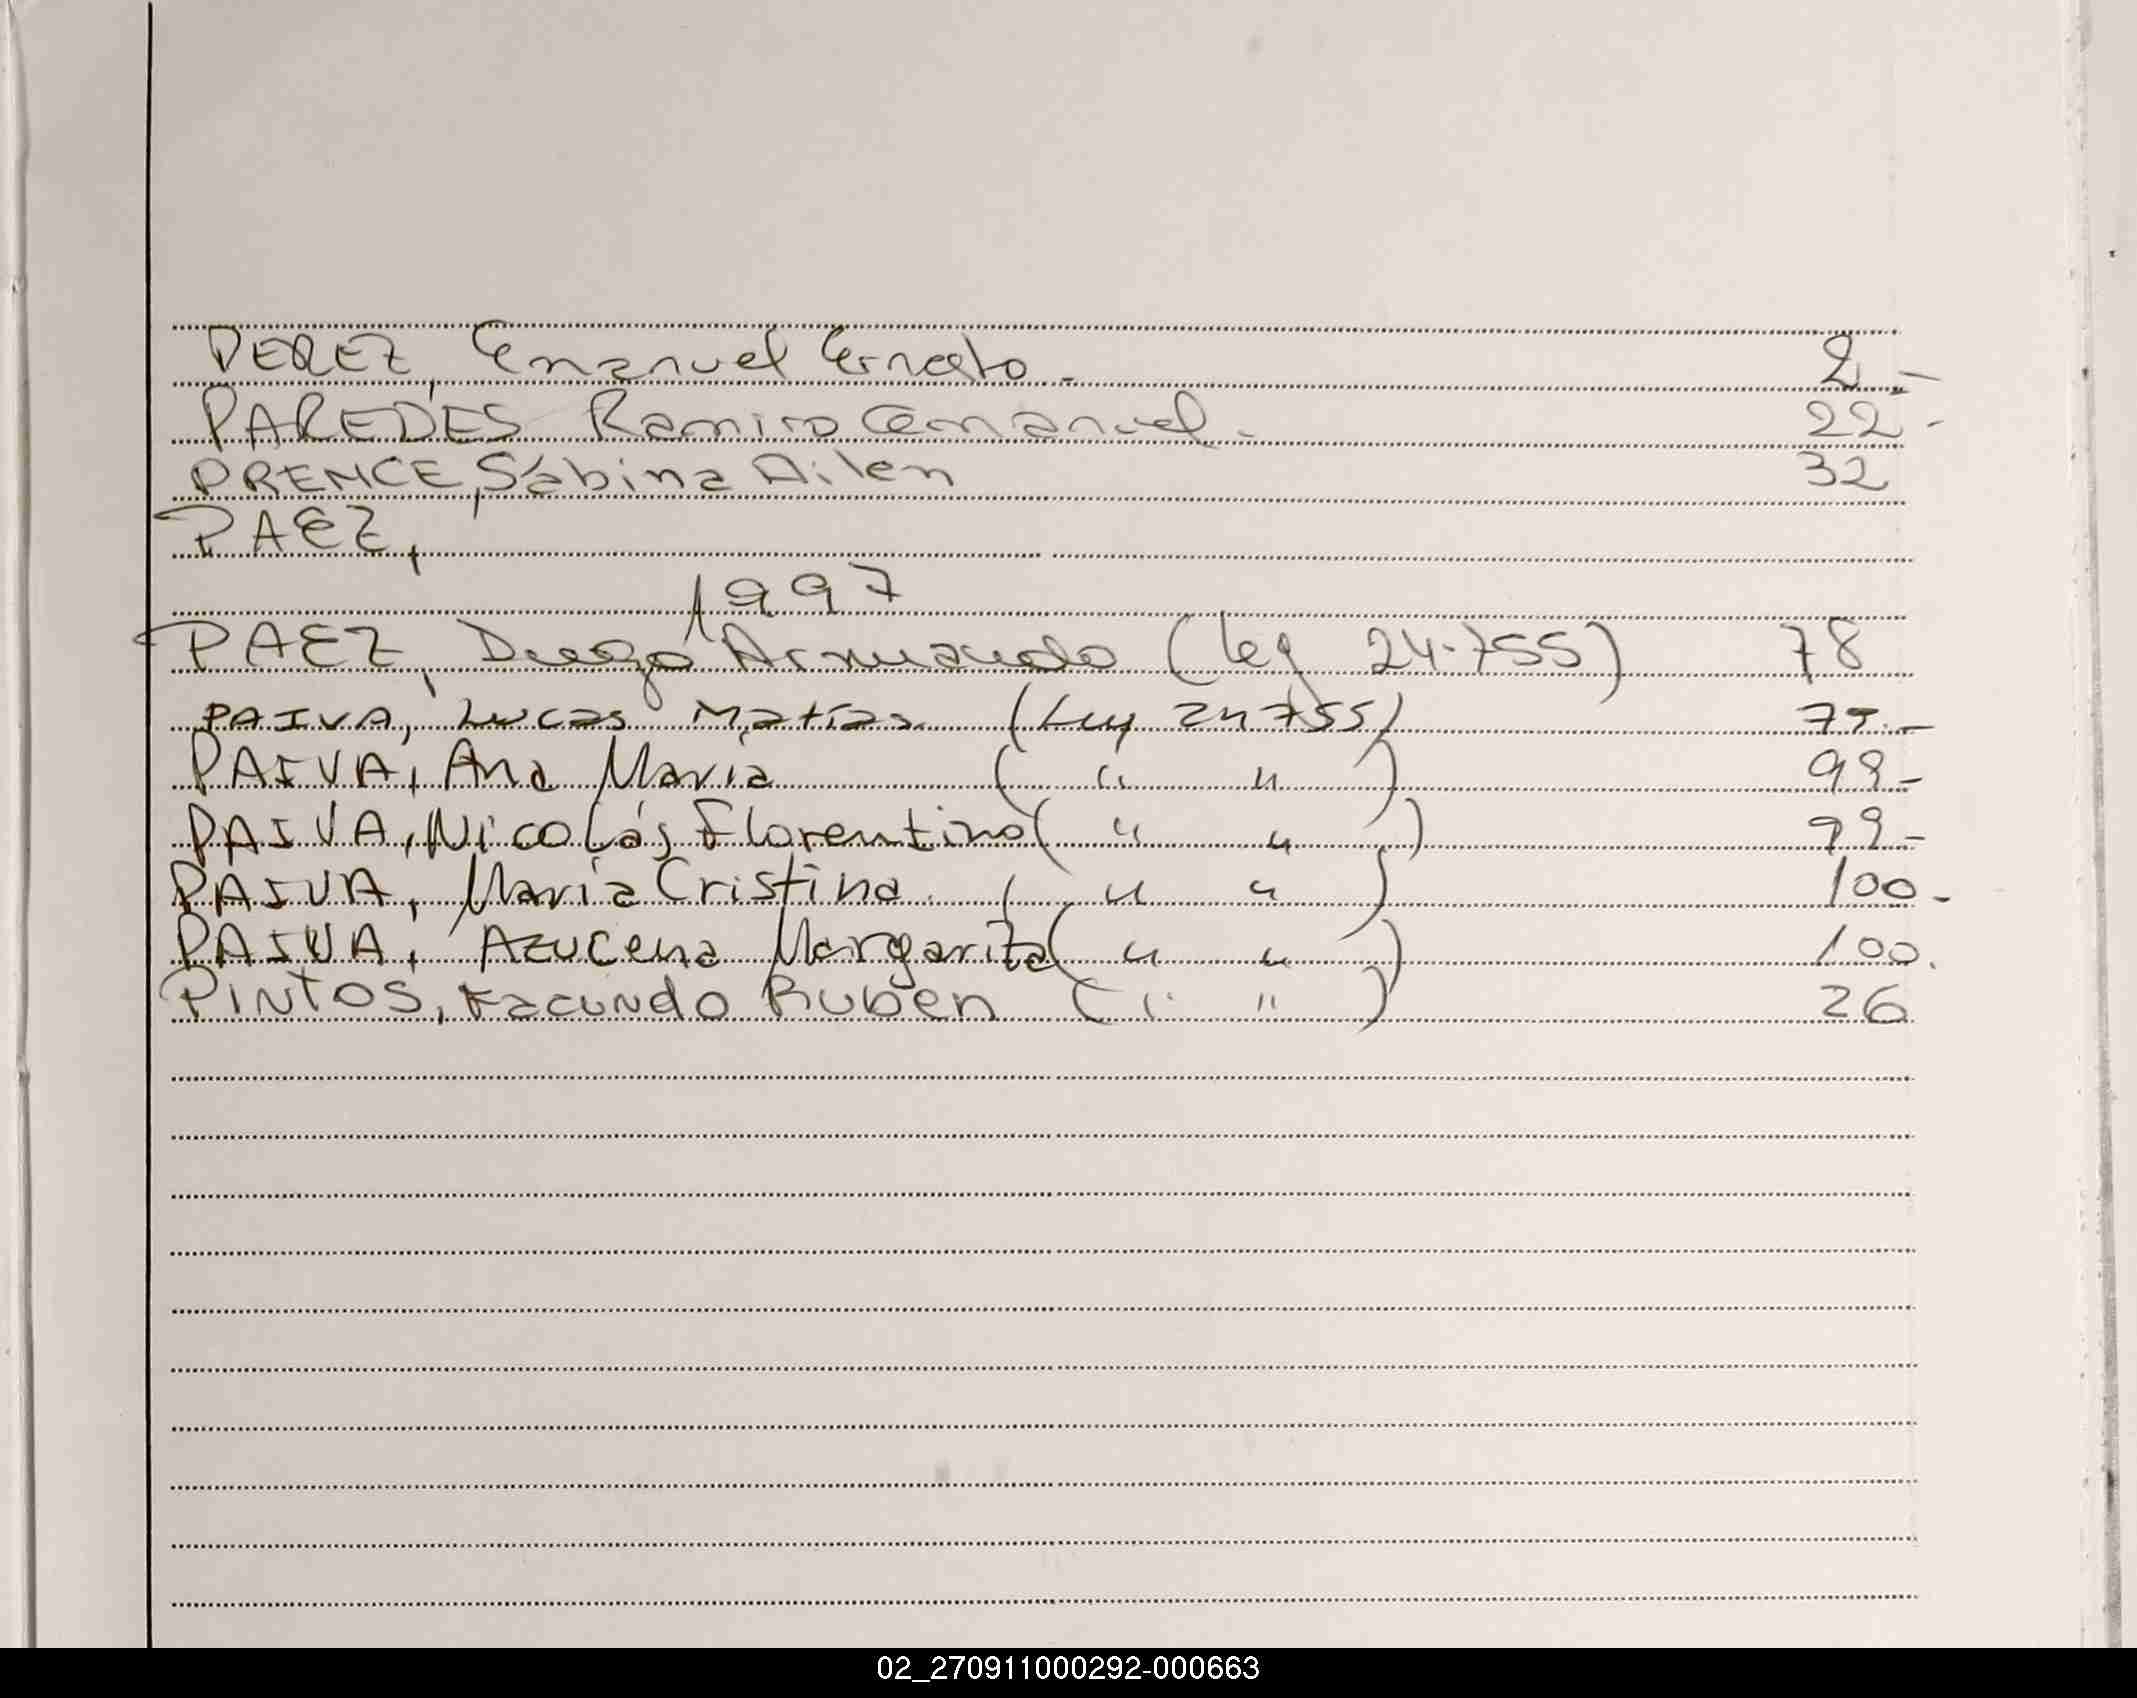 PEREZ, Emanuel Ernesto. 2.-
PAREDES Ramiro Emanuel. 22-
PRENCE, Sabina Ailen 32
PAEZ,
1997
PAEZ, Diego Armando (Ley 24.755) 78
PAIVA, Lucas Matías (Ley 24755)
PAIVA, Ana María ( " " ) 99-
PAIVA, Nicolás Florentino ( " " ) 99-
PAIVA, María Cristina. ( " " ) 100-
PAIVA, Azucena Margarita ( " " ) 100.
PINTOS, Facundo Ruben ( " " ) 26
02_270911000292-000663